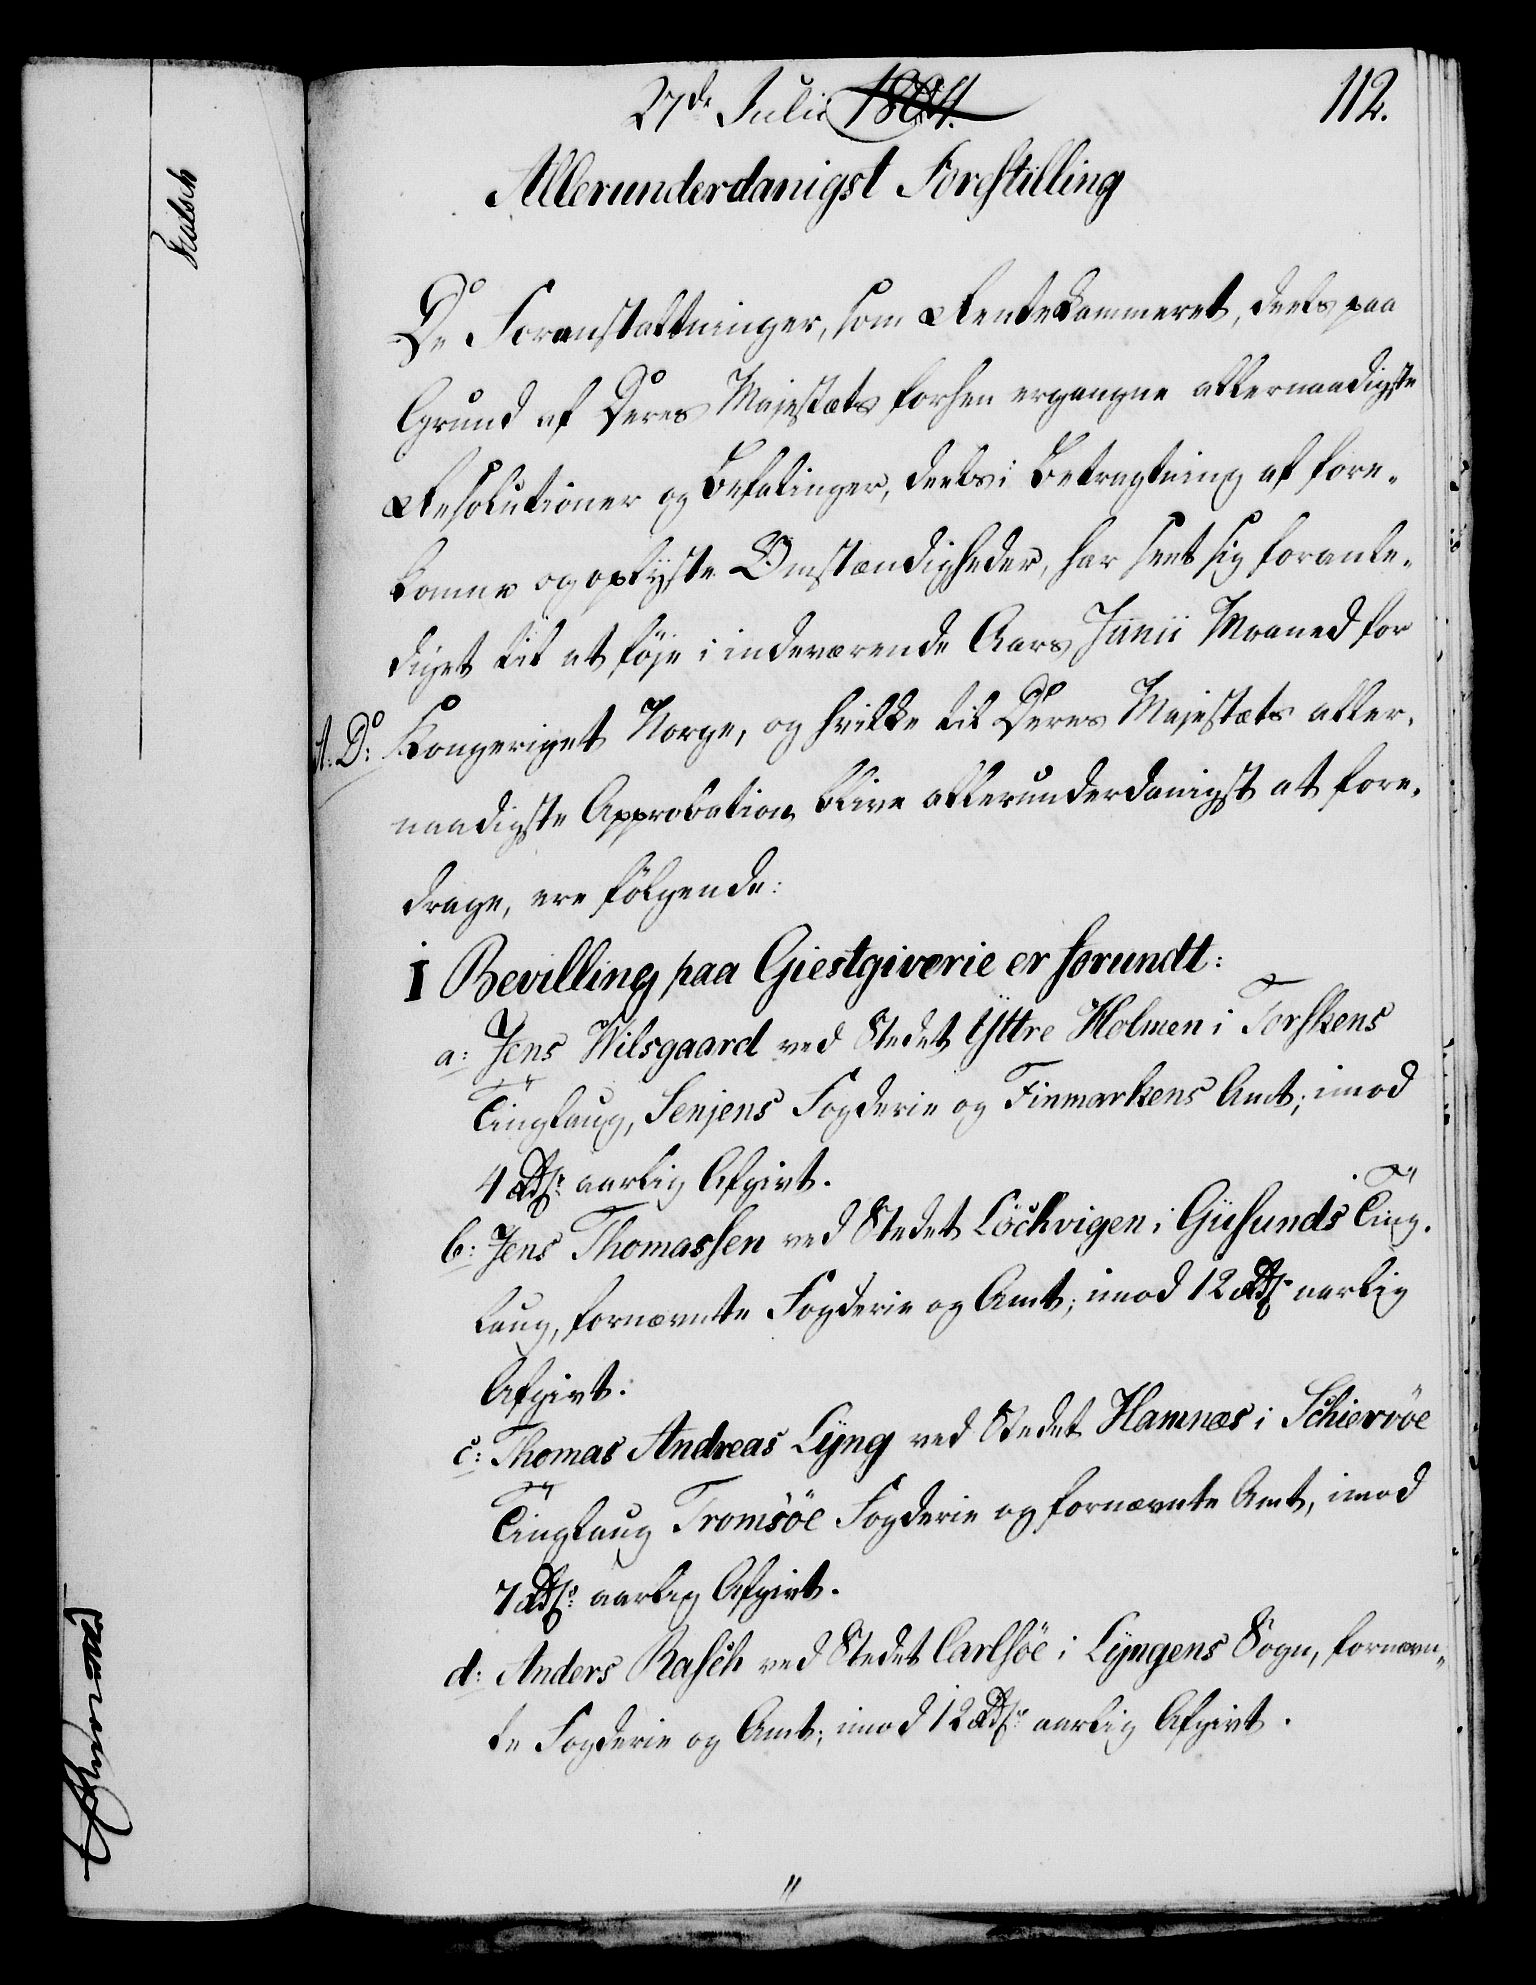 27de Julii 1804.
112.
Allerunderdanigst Forestilling
De Foranstaltninger, som Rentekammeret, deels paa
Grund af Deres Majestæts forhen ergangne allernaadigste
Resolutioner og Befalinger, deels i Betragtning af fore-
komne og oplyste Omstændigheder, har seet sig foranle-
diget til at föje i indeværende Aars Junii Maaned for
A. D: Kongeriget Norge, og hvilke til Deres Majestæts aller-
naadigste Approbation blive allerunderdanigst at fore-
drage, ere fölgende:
I Bevilling paa Giestgiverie er forundt:
a: Jens Wilsgaard ved Stedet Yttre Holmen i Torskens
Tinglaug, Senjens Fogderie og Finmarkens Amt; imod
4 Rdlr: aarlig Afgivt.
b: Jens Thomassen ved Stedet Löchvigen i Giisunds Ting-
laug, fornævnte Fogderie og Amt; imod 12 Rdlr aarlig
Afgivt.
c: Thomas Andreas Lyng ved Stedet Hamnæs i Schiervöe
Tinglaug Tromsöe Fogderie og fornævnte Amt, imod
7 Rdlr: aarlig Afgivt.
d: Anders Rasch ved Stedet Carlsöe i Lyngens Sogn, fornævn-
te Fogderie og Amt; imod 12 Rdlr: aarlig Afgivt.